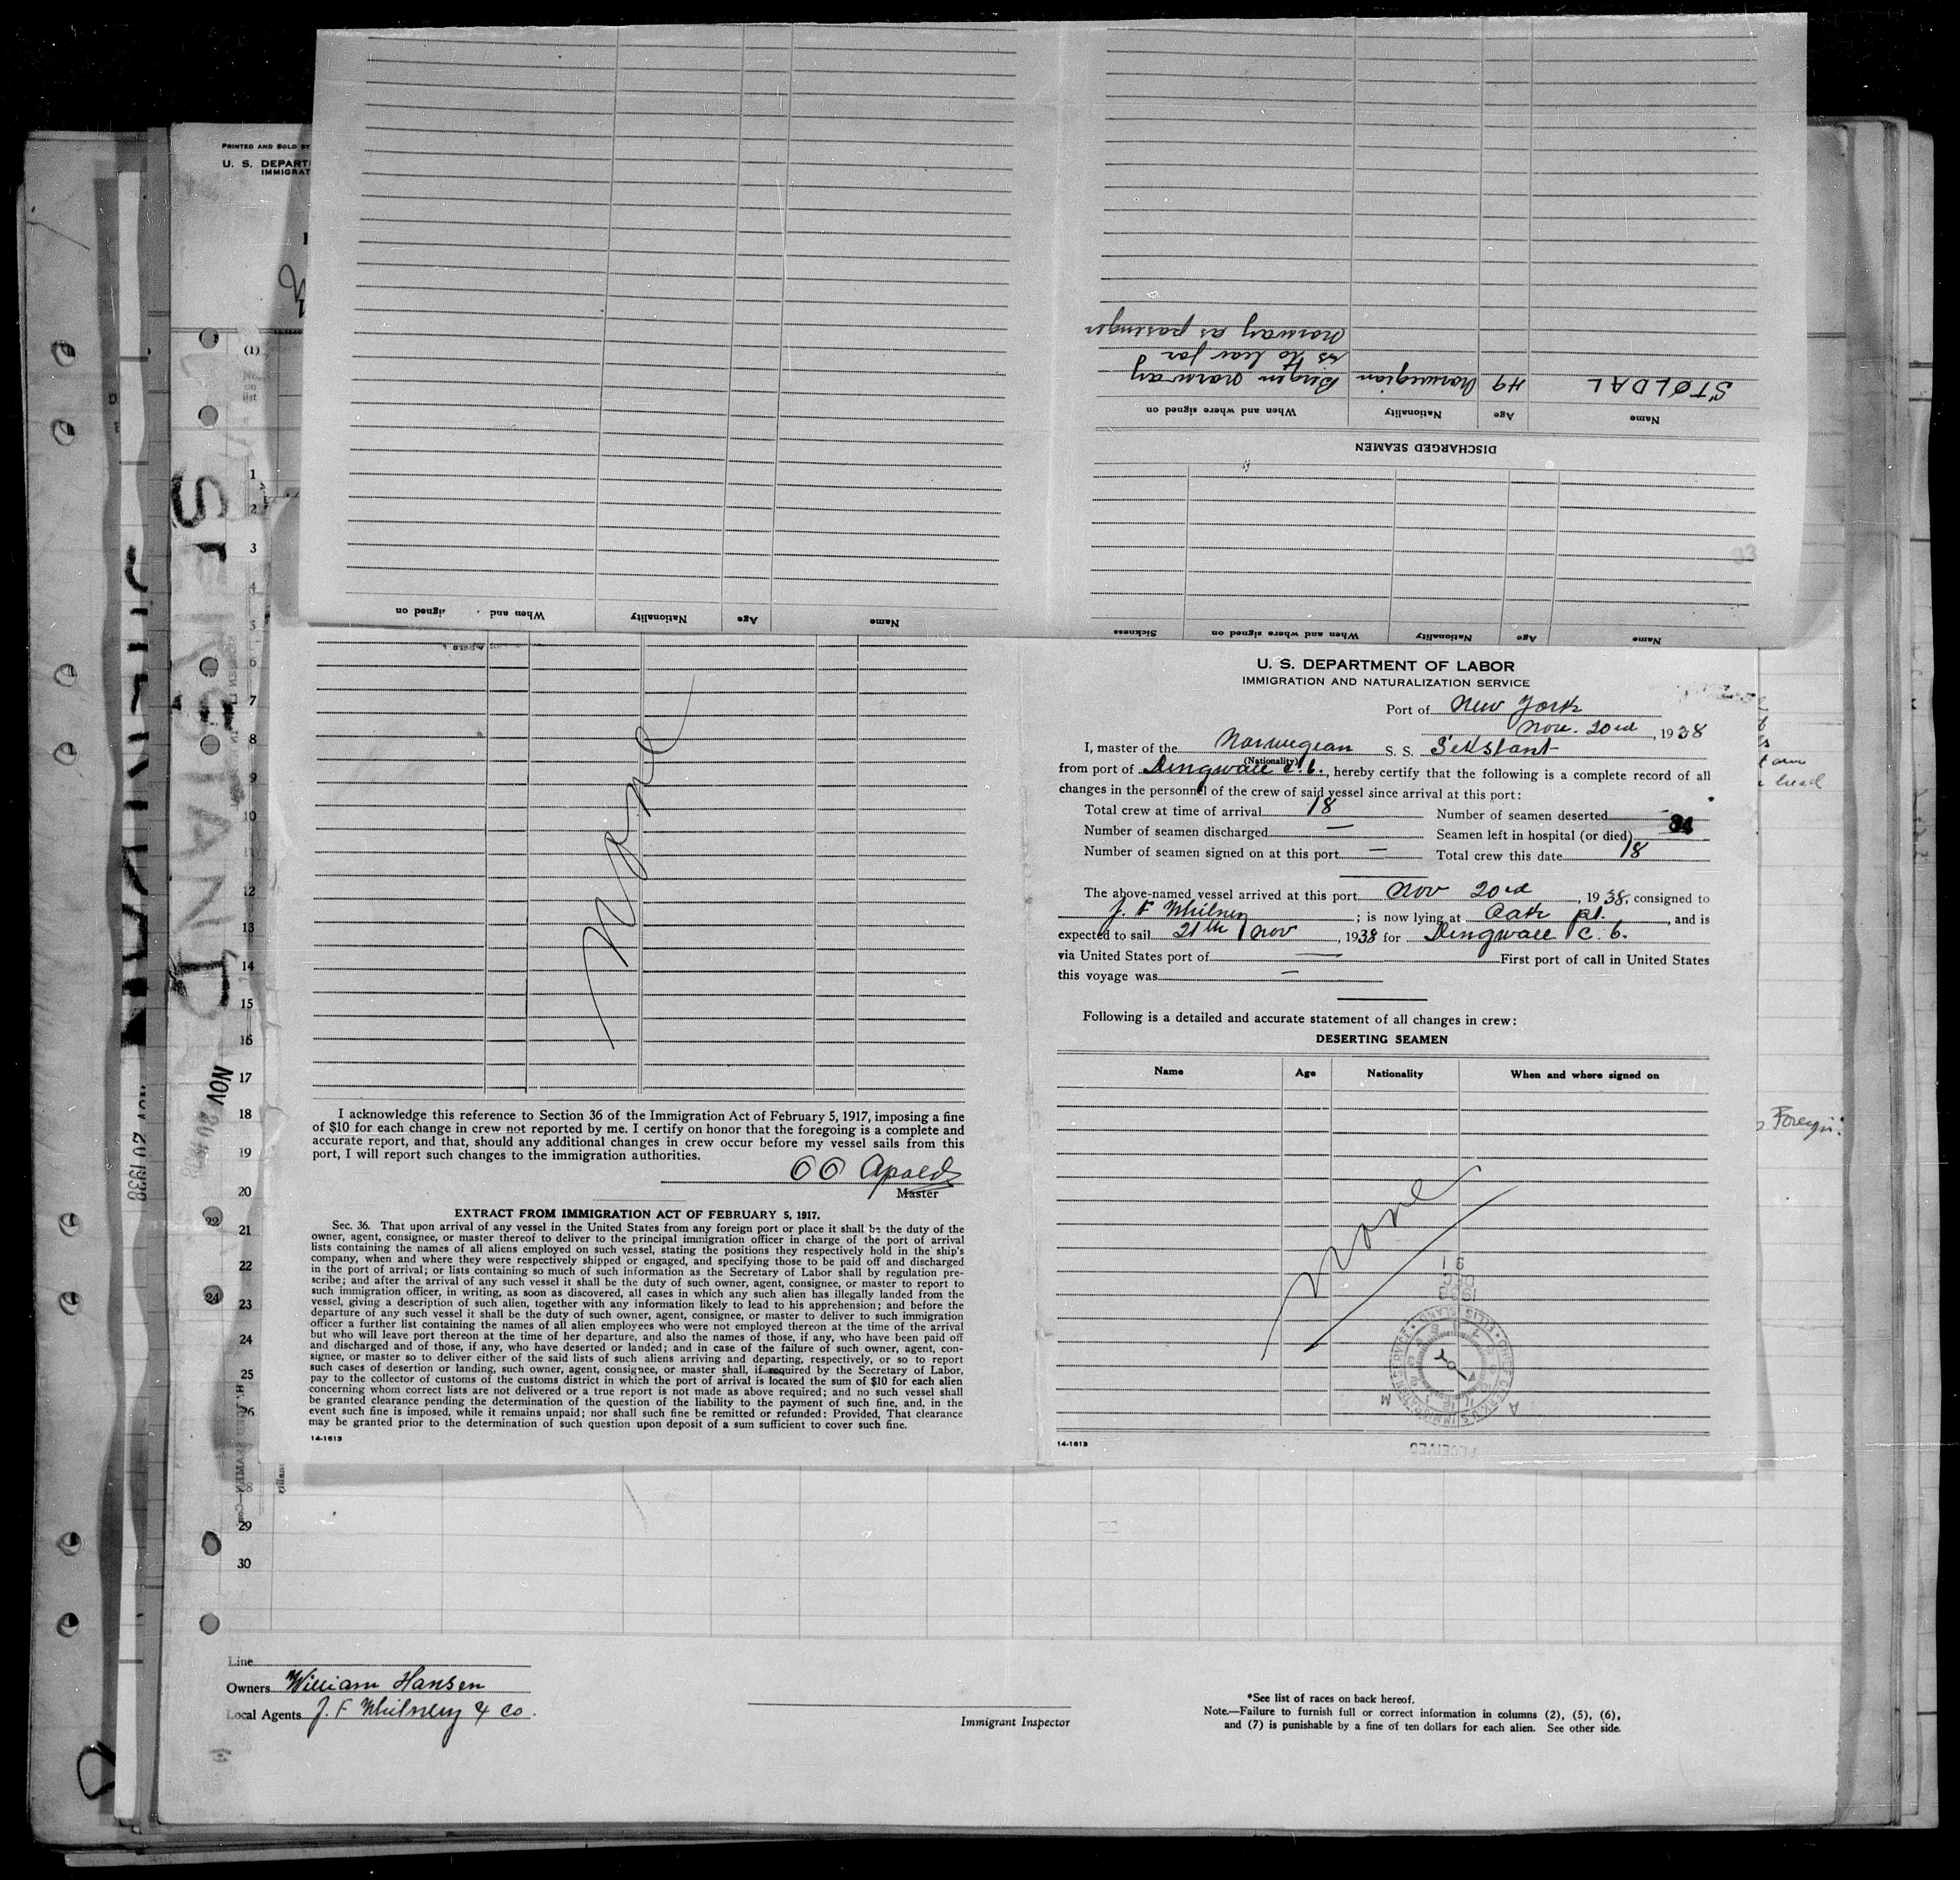 PRINTED AND SOLD BY
U. S. DEPART
IMMIGRAT
(1)
Name Age Nationality When and where signed on Sickness
DISCHARGED SEAMEN
Name Age Nationality When and where signed on
STØLDAL 49 Norwegian Bergen Norway
is to leav for
Norway as pasenger
Name Age Nationality When and signed on
1
2
3
4
5
6
7
8
9
10
11
12
13
14
15
16
17
18
19
20
21
22
23
24
25
26
29
30
SEKSTANT
NOV 20 1938
None
I acknowledge this reference to Section 36 of the Immigration Act of February 5, 1917, imposing a fine
of $10 for each change in crew not reported by me. I certify on honor that the foregoing is a complete and
accurate report, and that, should any additional changes in crew occur before my vessel sails from this
port, I will report such changes to the immigration authorities.
O O Apold
Master
EXTRACT FROM IMMIGRATION ACT OF FEBRUARY 5, 1917.
Sec. 36. That upon arrival of any vessel in the United States from any foreign port or place it shall be the duty of the
owner, agent, consignee, or master thereof to deliver to the principal immigration officer in charge of the port of arrival
lists containing the names of all aliens employed on such vessel, stating the positions they respectively hold in the ship's
company, when and where they were respectively shipped or engaged, and specifying those to be paid off and discharged
in the port of arrival; or lists containing so much of such information as the Secretary of Labor shall by regulation pre-
scribe; and after the arrival of any such vessel it shall be the duty of such owner, agent, consignee, or master to report to
such immigration officer, in writing, as soon as discovered, all cases in which any such alien has illegally landed from the
vessel, giving a description of such alien, together with any information likely to lead to his apprehension; and before the
departure of any such vessel it shall be the duty of such owner, agent, consignee, or master to deliver to such immigration
officer a further list containing the names of all alien employees who were not employed thereon at the time of the arrival
but who will leave port thereon at the time of her departure, and also the names of those, if any, who have been paid off
and discharged and of those, if any, who have deserted or landed; and in case of the failure of such owner, agent, con-
signee, or master so to deliver either of the said lists of such aliens arriving and departing, respectively, or so to report
such cases of desertion or landing, such owner, agent, consignee, or master shall, if required by the Secretary of Labor,
pay to the collector of customs of the customs district in which the port of arrival is located the sum of $10 for each alien
concerning whom correct lists are not delivered or a true report is not made as above required; and no such vessel shall
be granted clearance pending the determination of the question of the liability to the payment of such fine, and, in the
event such fine is imposed, while it remains unpaid; nor shall such fine be remitted or refunded: Provided, That clearance
may be granted prior to the determination of such question upon deposit of a sum sufficient to cover such fine.
14-1613
U. S. DEPARTMENT OF LABOR
IMMIGRATION AND NATURALIZATION SERVICE
Port of New York
Nov. 20rd, 1938
I, master of the Norwegian S. S. Sekstant
(Nationality)
from port of Dingwall C. B., hereby certify that the following is a complete record of all
changes in the personnel of the crew of said vessel since arrival at this port:
Total crew at time of arrival 18 Number of seamen deserted —
Number of seamen discharged — Seamen left in hospital (or died)
Number of seamen signed on at this port — Total crew this date 18
The above-named vessel arrived at this port Nov 20rd, 1938, consigned to
J. F Whitney; is now lying at Oak pt., and is
expected to sail 21th Nov, 1938 for Dingwall C. B.
via United States port of — First port of call in United States
this voyage was —
Following is a detailed and accurate statement of all changes in crew:
DESERTING SEAMEN
Name Age Nationality When and where signed on
None
RECEIVED
14-1613
Foreign
Line
Owners William Hansen
Local Agents J. F Whitney & Co.
Immigrant Inspector
*See list of races on back hereof.
Note.—Failure to furnish full or correct information in columns (2), (5), (6),
and (7) is punishable by a fine of ten dollars for each alien. See other side.